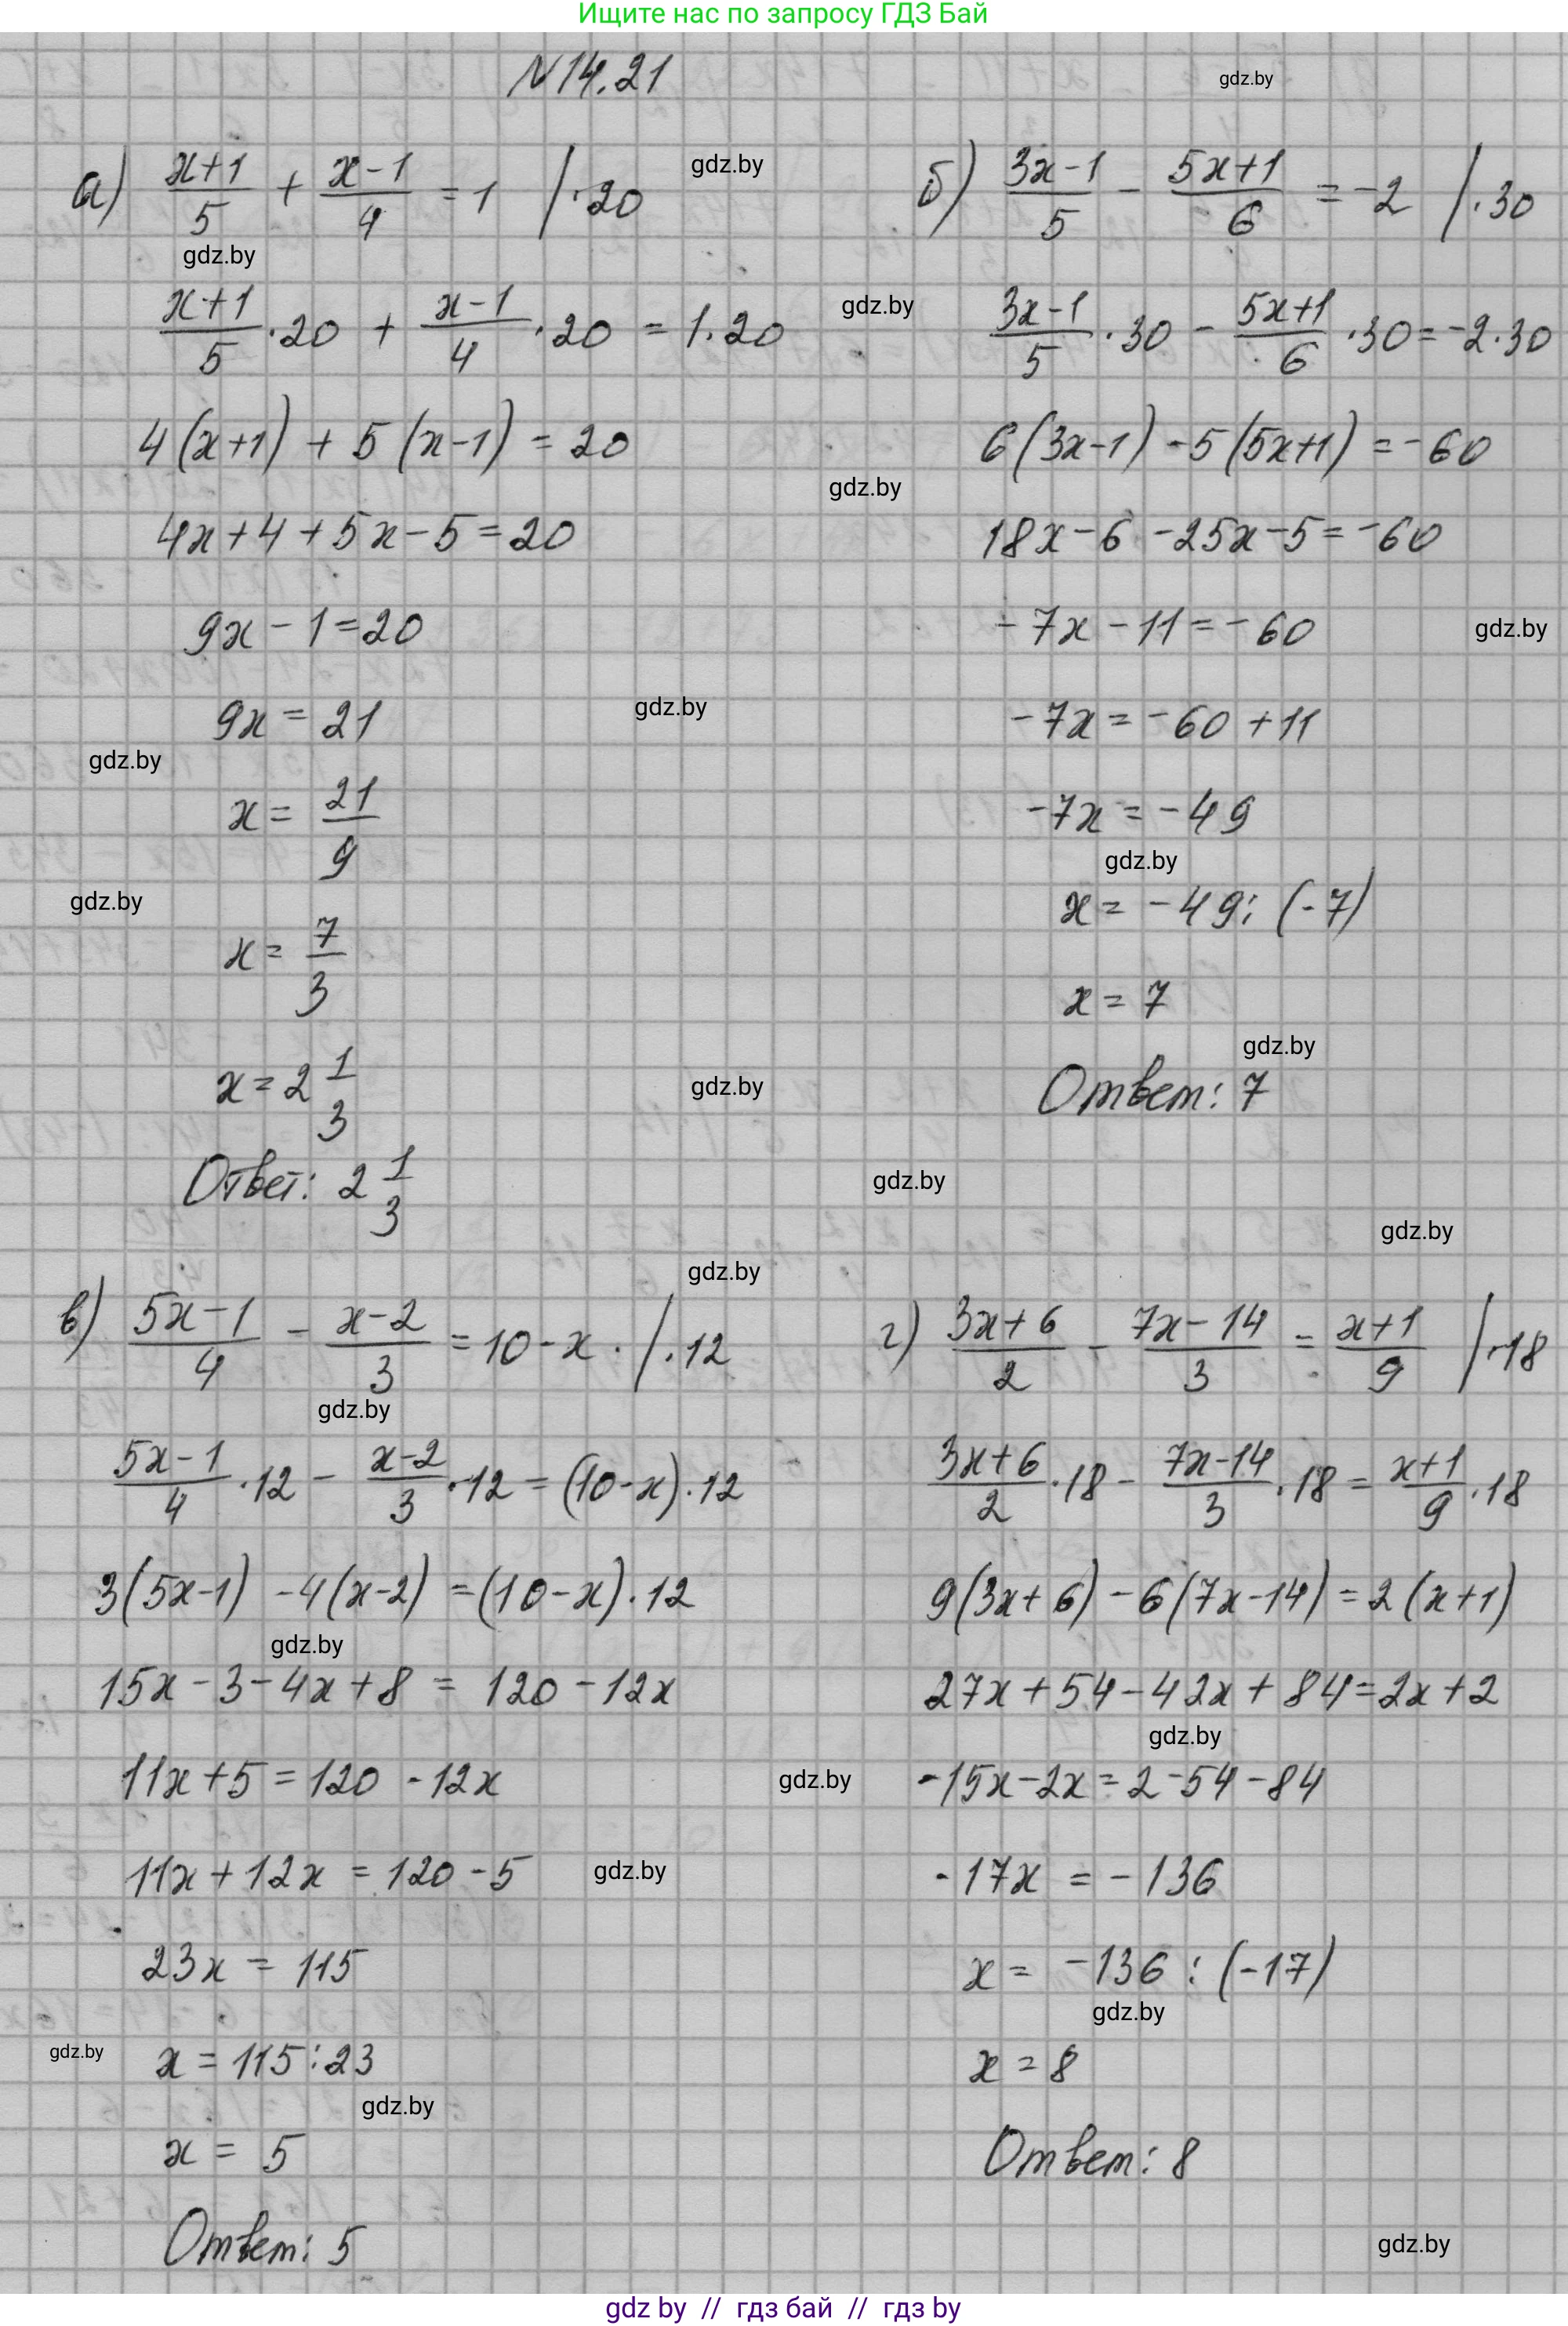 Ищите нас по запросу ГДЗ Бай
N14.21
gdz.by
а) (x+1)/5 + (x-1)/4 = 1 /·20
gdz.by
gdz.by
(x+1)/5 ·20 + (x-1)/4 ·20 = 1·20
4(x+1) + 5(x-1) = 20
4x+4+5x-5=20
9x-1=20
9x=21
gdz.by
gdz.by
x= 21/9
gdz.by
x= 7/3
x=2 1/3
gdz.by
Ответ: 2 1/3
б) (3x-1)/5 - (5x+1)/6 = -2 /·30
gdz.by
(3x-1)/5 ·30 - (5x+1)/6 ·30=-2·30
6(3x-1)-5(5x+1)=-60
gdz.by
18x-6-25x-5=-60
-7x-11=-60
gdz.by
-7x=-60+11
-7x=-49
gdz.by
x=-49:(-7)
x=7
gdz.by
Ответ: 7
gdz.by
gdz.by
gdz.by
в) (5x-1)/4 - (x-2)/3 =10-x. /·12
gdz.by
(5x-1)/4 ·12 - (x-2)/3 ·12=(10-x)·12
3(5x-1)-4(x-2)=(10-x)·12
gdz.by
15x-3-4x+8 = 120-12x
11x+5=120-12x
gdz.by
11x+12x=120-5
gdz.by
23x=115
gdz.by
x=115:23
gdz.by
x= 5
Ответ: 5
г) (3x+6)/2 - (7x-14)/3 = (x+1)/9 /·18
(3x+6)/2 ·18- (7x-14)/3 ·18= (x+1)/9 ·18
9(3x+6)-6(7x-14)=2(x+1)
27x+54-42x+84=2x+2
gdz.by
-15x-2x=2-54-84
-17x = -136
x= -136:(-17)
gdz.by
x=8
Ответ: 8
gdz.by
gdz by // гдз бай // гдз by